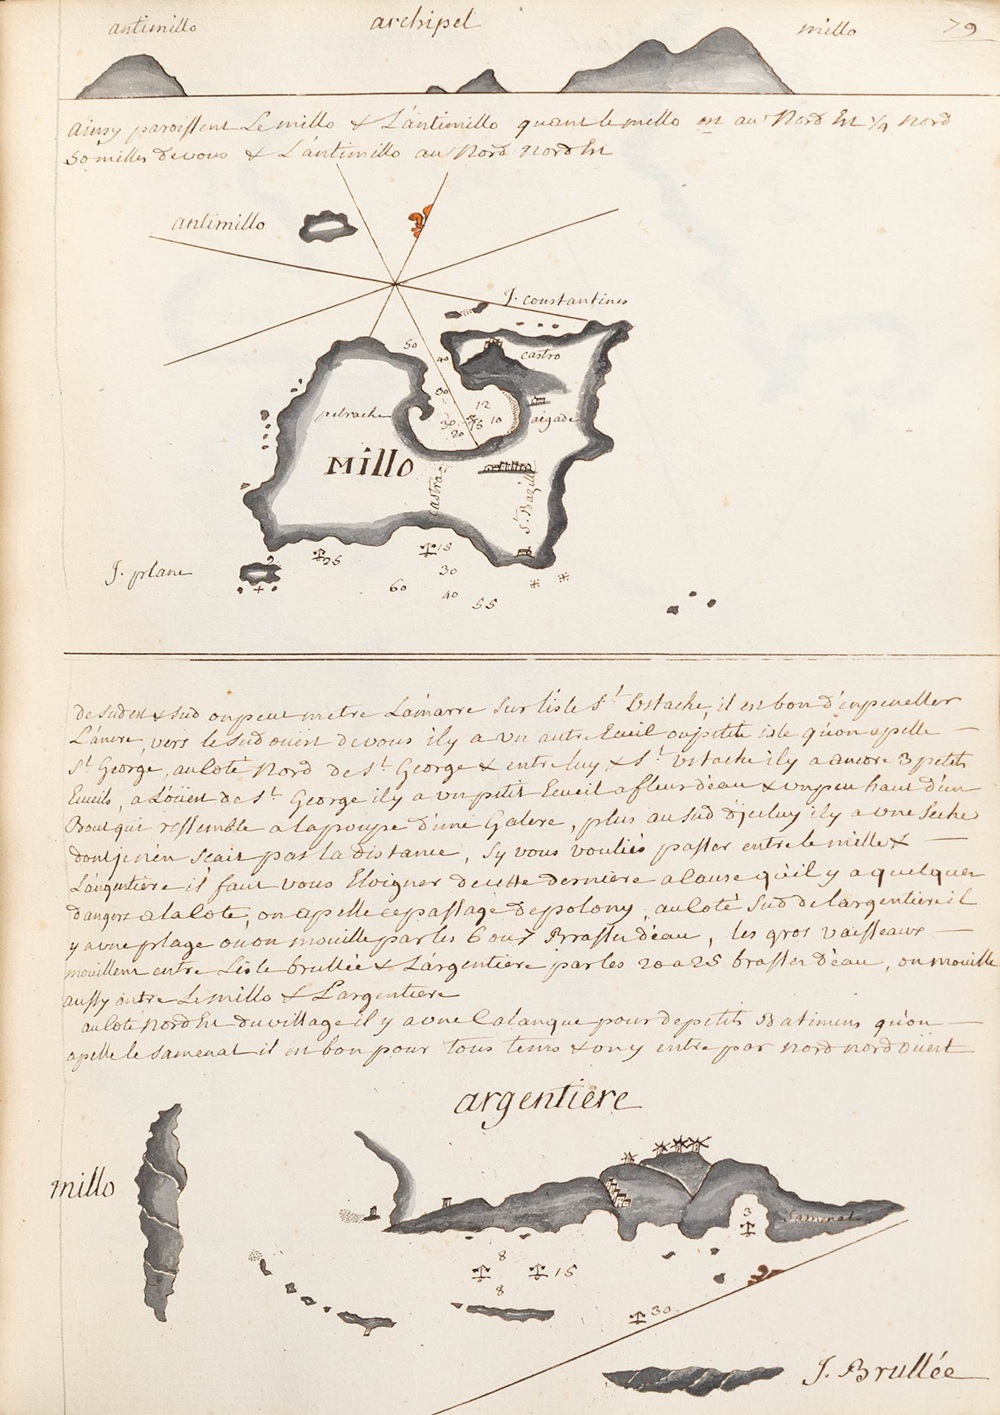 79
antimillo archipel millo
ainsy paroissent Le millo & L'antimillo quant le millo est au Nord Est 1/4 Nord
50 milles de vous & L'antimillo au Nord Nord Est
antimillo
J. constantines
50
40 castro
petrache 30 12 aigade
30 15 10
20
Millo
castra St. Bazille
J. plane 25 18
30
60 40 55
de sud est & sud on peut metre L'amarre sur l'isle St. Ustache, il est bon d'enpeneller
L'ancre, vers le sud ouest de vous il y a un autre Ecueil ou petite isle qu'on apelle
St. George, au coté Nord de St. George & entre luy & St. Ustache il y a ancore 3 petits
Ecueils, a L'oüest de St. George il y a un petit Ecueil a fleur d'eau & un peu haut d'un
Bout qui ressemble a la poupe d'une Galere, plus au sud d'jceluy il y a une seche
dont je n'en scait pas la distance, sy vous vouliés passer entre le mille &
L'argentiere il faut vous Eloigner de cette derniere a cause qu'il y a quelques
dangers a la cote, on apelle ce passage de polony, au coté sud de l'argentiere il
y a une plage ou on mouille par les 6 ou 7 Brasses d'eau, les gros vaisseaux
mouillent entre L'isle brullée & L'argentiere par les 20 a 25 brasses d'eau, on mouille
aussy entre Le millo & L'argentiere
au coté Nord Est du village il y a une Calanque pour de petits Batimens qu'on
apelle le samenat il est bon pour tous tems & on y entre par nord nord oüest
argentiere
millo
3 Samenat
8 15
8
30
J. Brullée